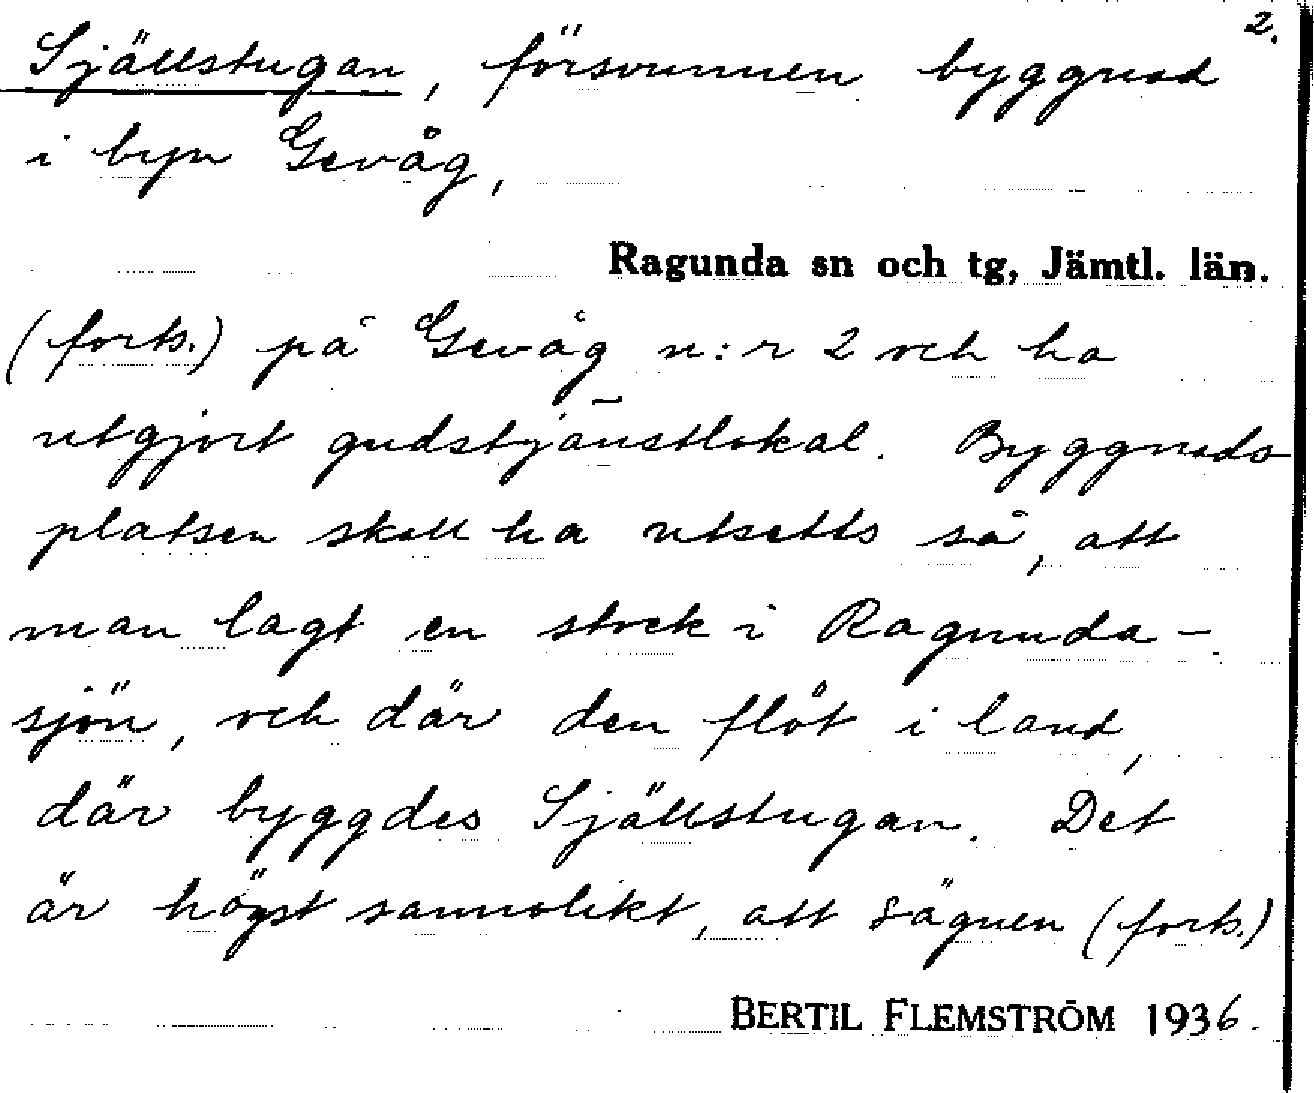 2.
Själlstugan, försvunnen byggnad
i byn Gevåg,
Ragunda sn och tg, Jämtl. län.
(forts.) på Gevåg n:r 2 och ha
utgjort gudstjänstlokal. Byggnads
platsen skall ha utsetts så, att
man lagt en stock i Ragunda-
sjön, och där den flöt i land,
där byggdes Själlstugan. Det
är högst sannolikt, att sägnen (forts.)
BERTIL FLEMSTRÖM 1936.